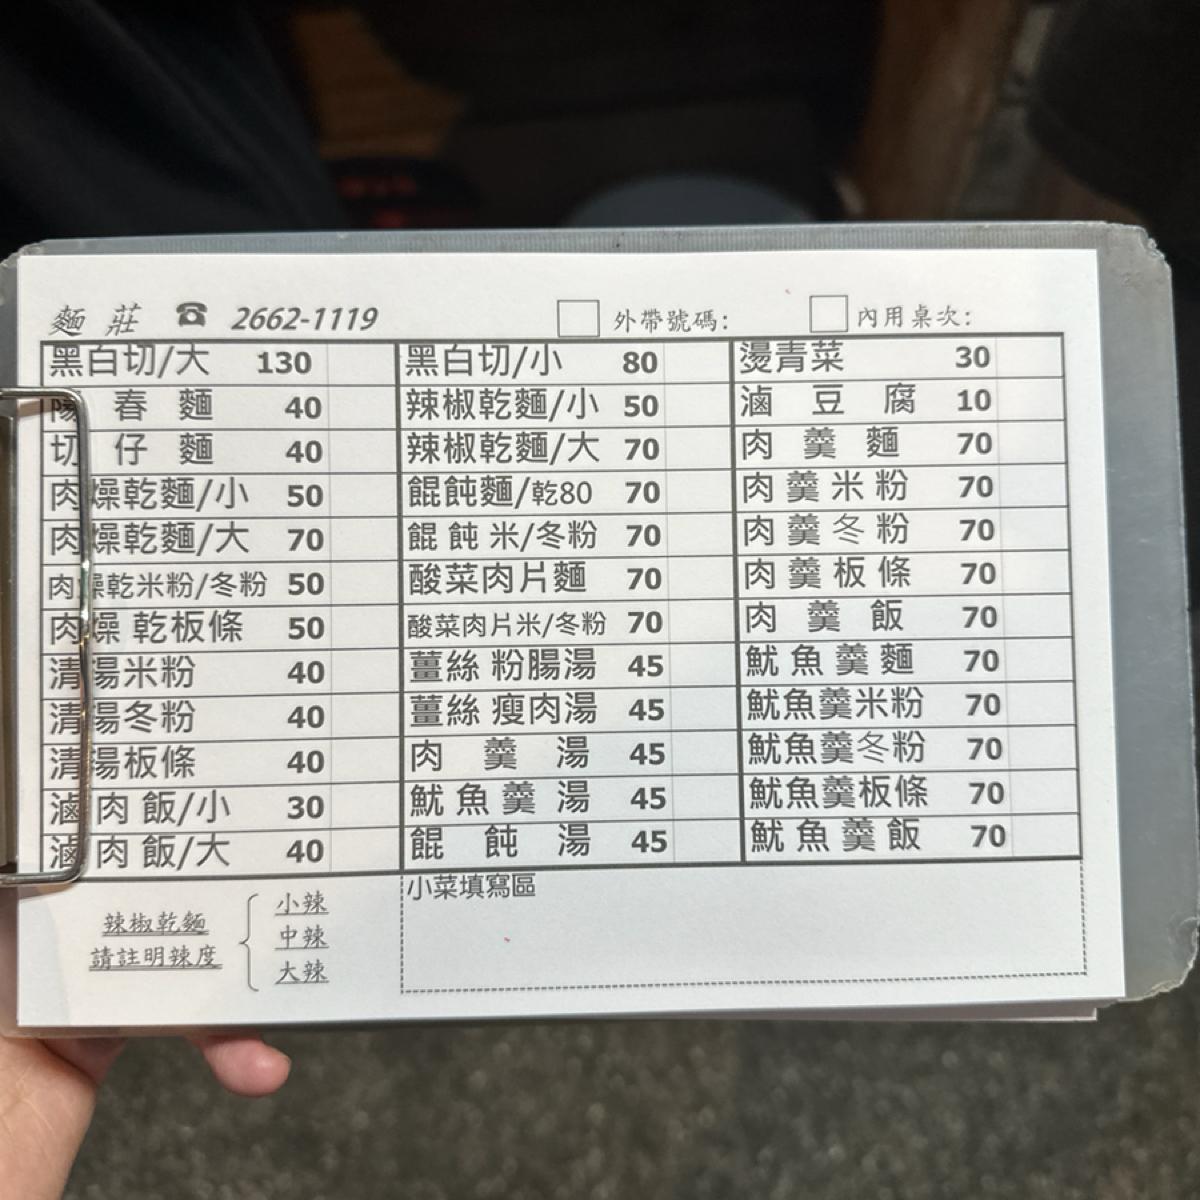 麵 莊 ☎ 2662-1119 □ 外帶號碼: □ 內用桌次:
黑白切/大 130 黑白切/小 80 燙青菜 30
陽 春 麵 40 辣椒乾麵/小 50 滷 豆 腐 10
切 仔 麵 40 辣椒乾麵/大 70 肉 羹 麵 70
肉燥乾麵/小 50 餛飩麵/乾80 70 肉 羹 米 粉 70
肉燥乾麵/大 70 餛 飩 米/冬粉 70 肉 羹 冬 粉 70
肉燥乾米粉/冬粉 50 酸菜肉片麵 70 肉 羹 板 條 70
肉燥 乾板條 50 酸菜肉片米/冬粉 70 肉 羹 飯 70
清湯米粉 40 薑絲 粉腸湯 45 魷 魚 羹 麵 70
清湯冬粉 40 薑絲 瘦肉湯 45 魷魚羹米粉 70
清湯板條 40 肉 羹 湯 45 魷魚羹冬粉 70
滷 肉 飯/小 30 魷 魚 羹 湯 45 魷魚羹板條 70
滷 肉 飯/大 40 餛 飩 湯 45 魷 魚 羹 飯 70
小菜填寫區
辣椒乾麵
請註明辣度
小辣
中辣
大辣